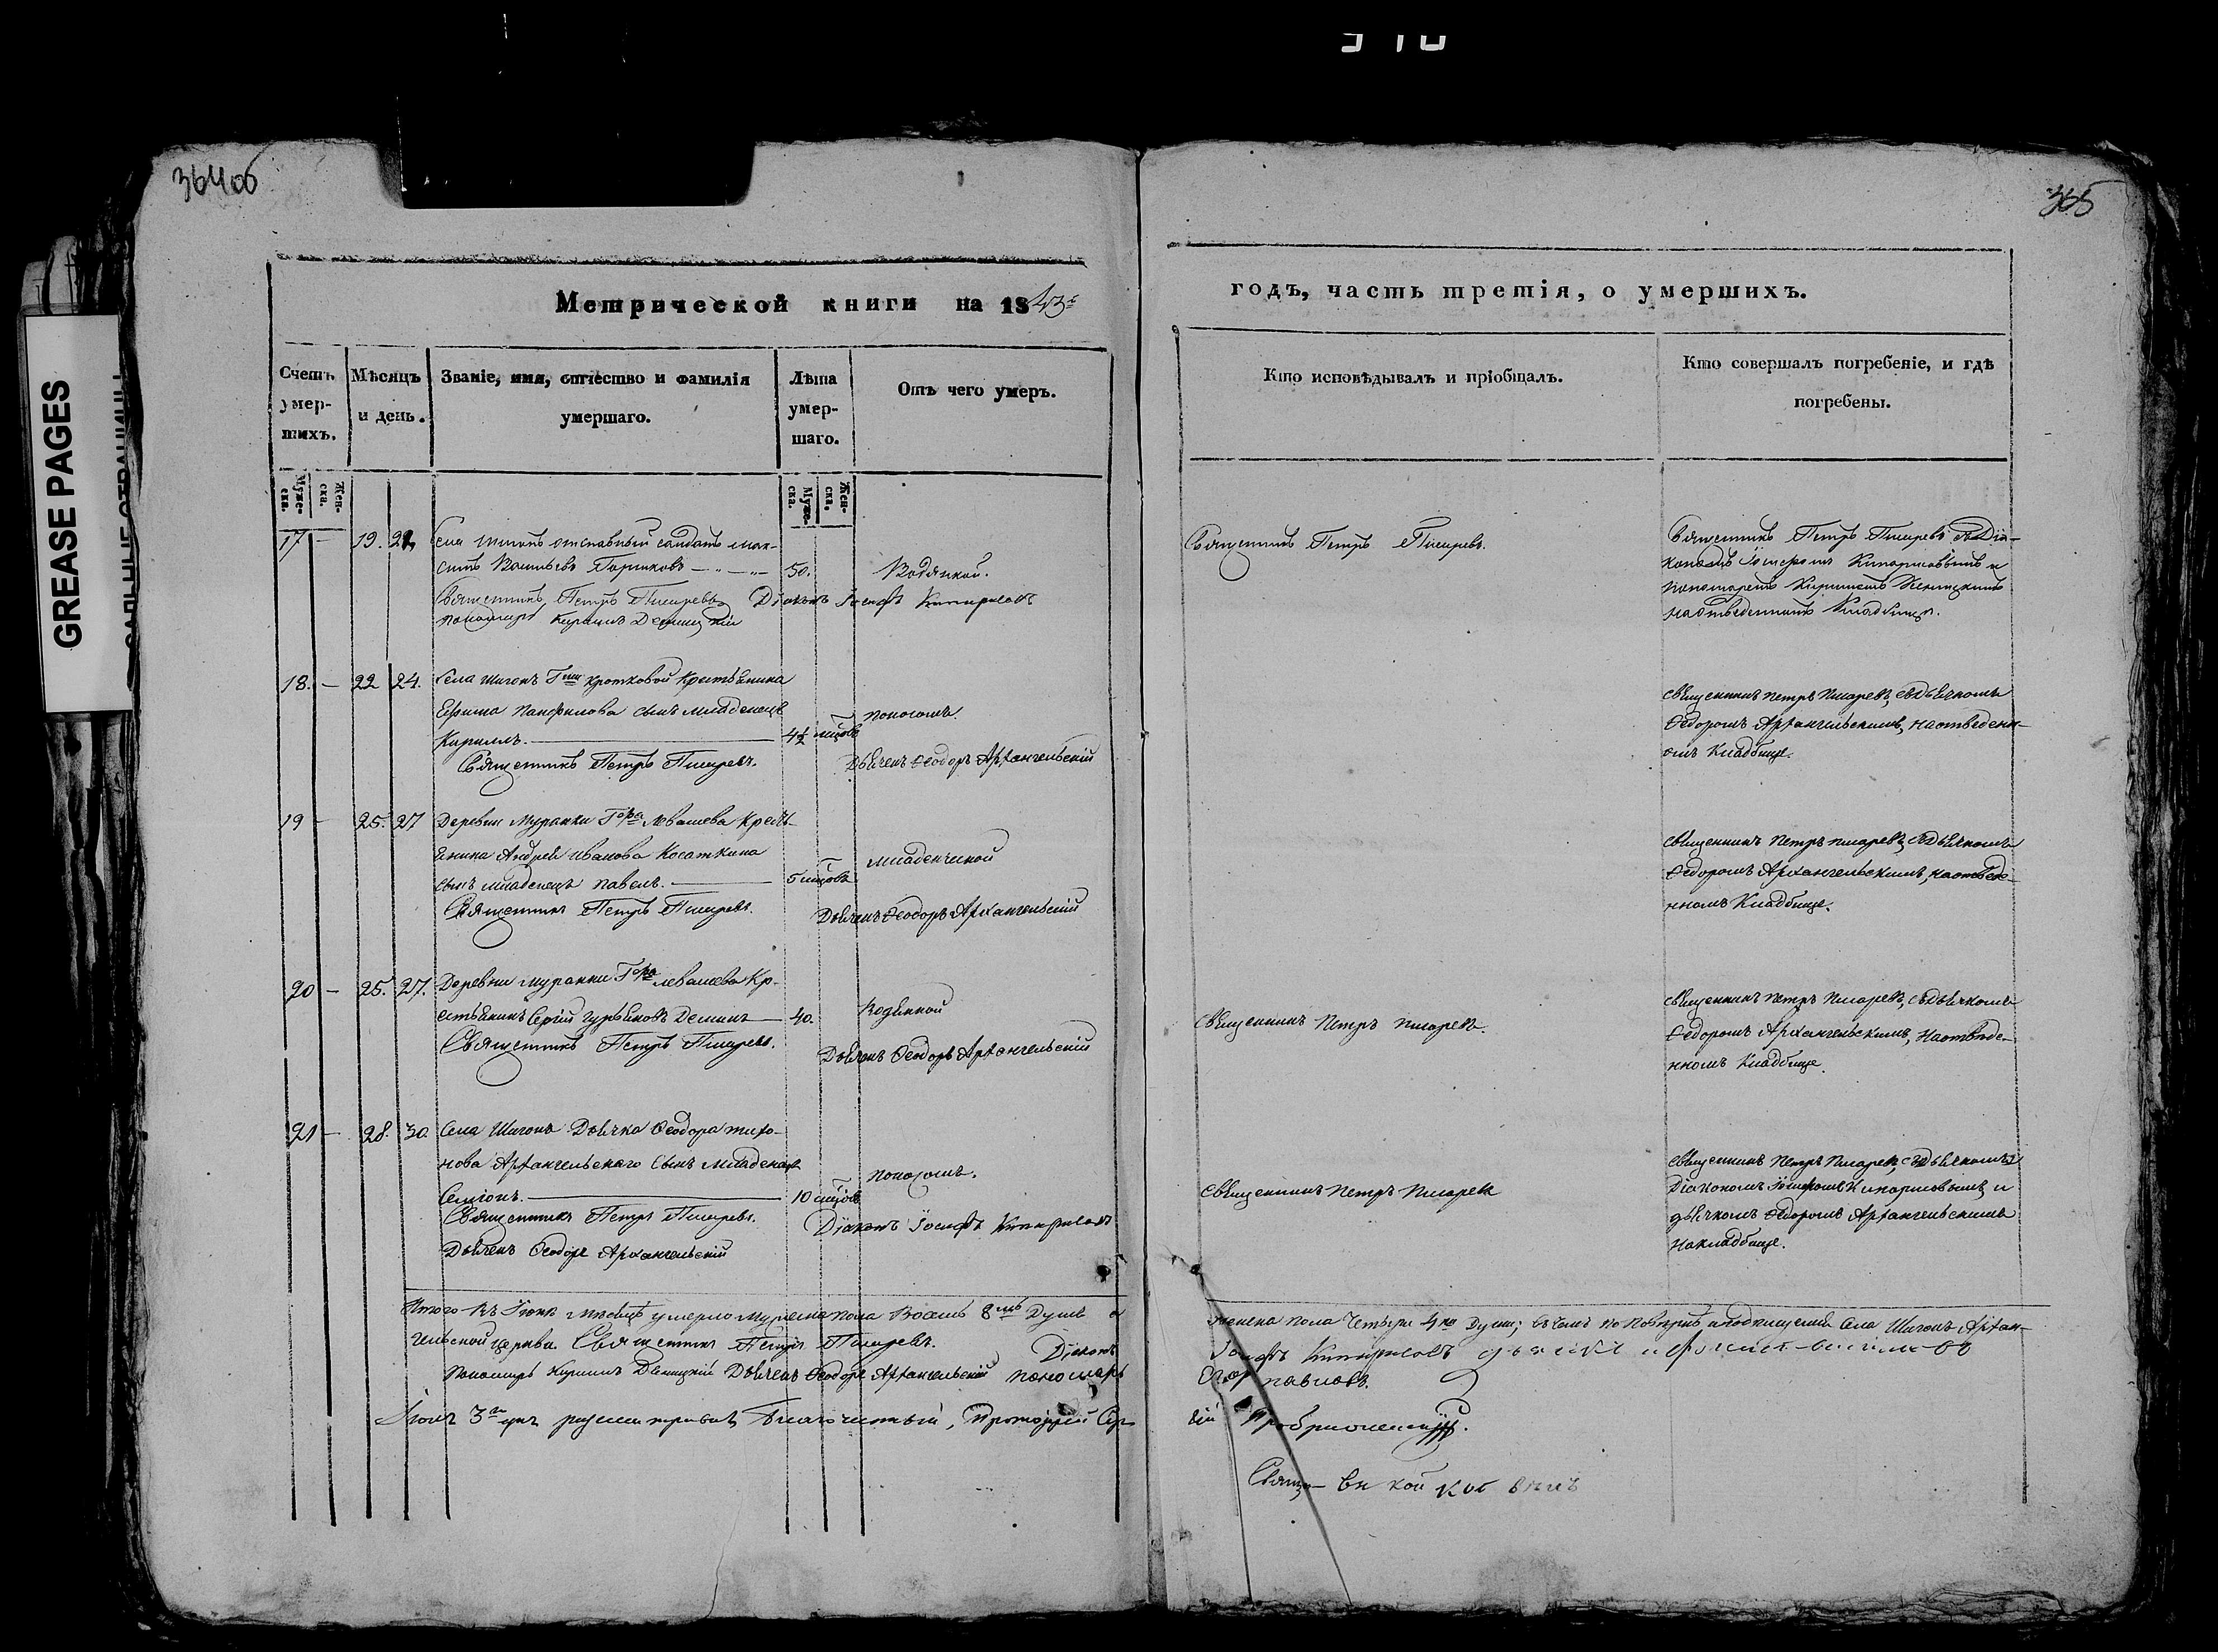 310
364 об
365
GREASE PAGES
Метрической книги на 1843й
годъ, часть третія, о умершихъ.
Счетъ умер-шихъ.
Мѣсяцъ и день.
Званіе, имя, отчество и фамилія умершаго.
Лѣта умер-шаго.
Отъ чего умеръ.
Кто исповѣдывалъ и пріобщалъ.
Кто совершалъ погребеніе, и гдѣ погребены.
Муже-ска.
Жен-ска.
Муже-ска.
Жен-ска.
17 — 19. 21. Села Шигонъ отставный солдатъ Мак-
симъ Васильевъ — „ — „ — 50. Водяной.
Священникъ Петръ Писаревъ. Діаконъ Іосифъ Кипарисовъ
пономарь Кириллъ
Священникъ Петръ Писаревъ.
Священникъ Петръ Писаревъ съ Діа-
кономъ Іосифомъ Кипарисовымъ и
пономаремъ Кирилломъ
на отведенномъ кладбище.
18. — 22 24. Села Шигонъ Гжи Кротковой крестьянина
Ефима Панфилова сынъ младенецъ
Кириллъ. — 4½ мцовъ поносомъ.
Священникъ Петръ Писаревъ. Дьячекъ Ѳеодоръ Архангельскій
священникъ Петръ Писаревъ, съ дьячкомъ
Ѳедоромъ Архангельскимъ, на отведенн-
омъ кладбище.
19 — 25. 27 Деревни Муранки Гдна Левашева кресть-
янина Андрея Иванова Косаткина
сынъ младенецъ Павелъ. — 5 мцовъ младенческой
Священникъ Петръ Писаревъ. Дьячекъ Ѳеодоръ Архангельскій
священникъ Петръ Писаревъ, съ дьячкомъ
Ѳедоромъ Архангельскимъ, на отведе-
нномъ кладбище.
20 — 25. 27. Деревни Муранки Гдна Левашева кр-
естьянинъ Сергій Гурьяновъ Деминъ — 40. Водянной
Священникъ Петръ Писаревъ. Дьячекъ Ѳеодоръ Архангельскій
священникъ Петръ Писаревъ.
священникъ Петръ Писаревъ, съ дьячкомъ
Ѳедоромъ Архангельскимъ, на отведе-
нномъ кладбище.
21 — 28. 30. Села Шигонъ Дьячка Ѳеодора Тихо-
нова Архангельскаго сынъ младенецъ
Симіонъ. — 10 мцовъ поносомъ.
Священникъ Петръ Писаревъ. Діаконъ Іосифъ Кипарисовъ
Дьячекъ Ѳеодоръ Архангельскій
священникъ Петръ Писаревъ
священникъ Петръ Писаревъ, съ
Діакономъ Іосифомъ Кипарисовымъ и
дьячкомъ Ѳедоромъ Архангельскимъ
на кладбище.
Итого въ Іюнѣ мѣсяцѣ умерло мужеска пола восемь 8мь душъ а
женска пола четыре 4ре души; въ чемъ по повѣркѣ и подписуемся Села Шигонъ Архан-
гельской церкви Священникъ Петръ Писаревъ. Діаконъ
Іосифъ Кипарисовъ
Пономарь Кириллъ Дьячекъ Ѳеодоръ Архангельскій пономарь
Егоръ Павловъ.
Іюля 3го дня разсматривалъ Благочинный, Протоіерей Сер-
гій